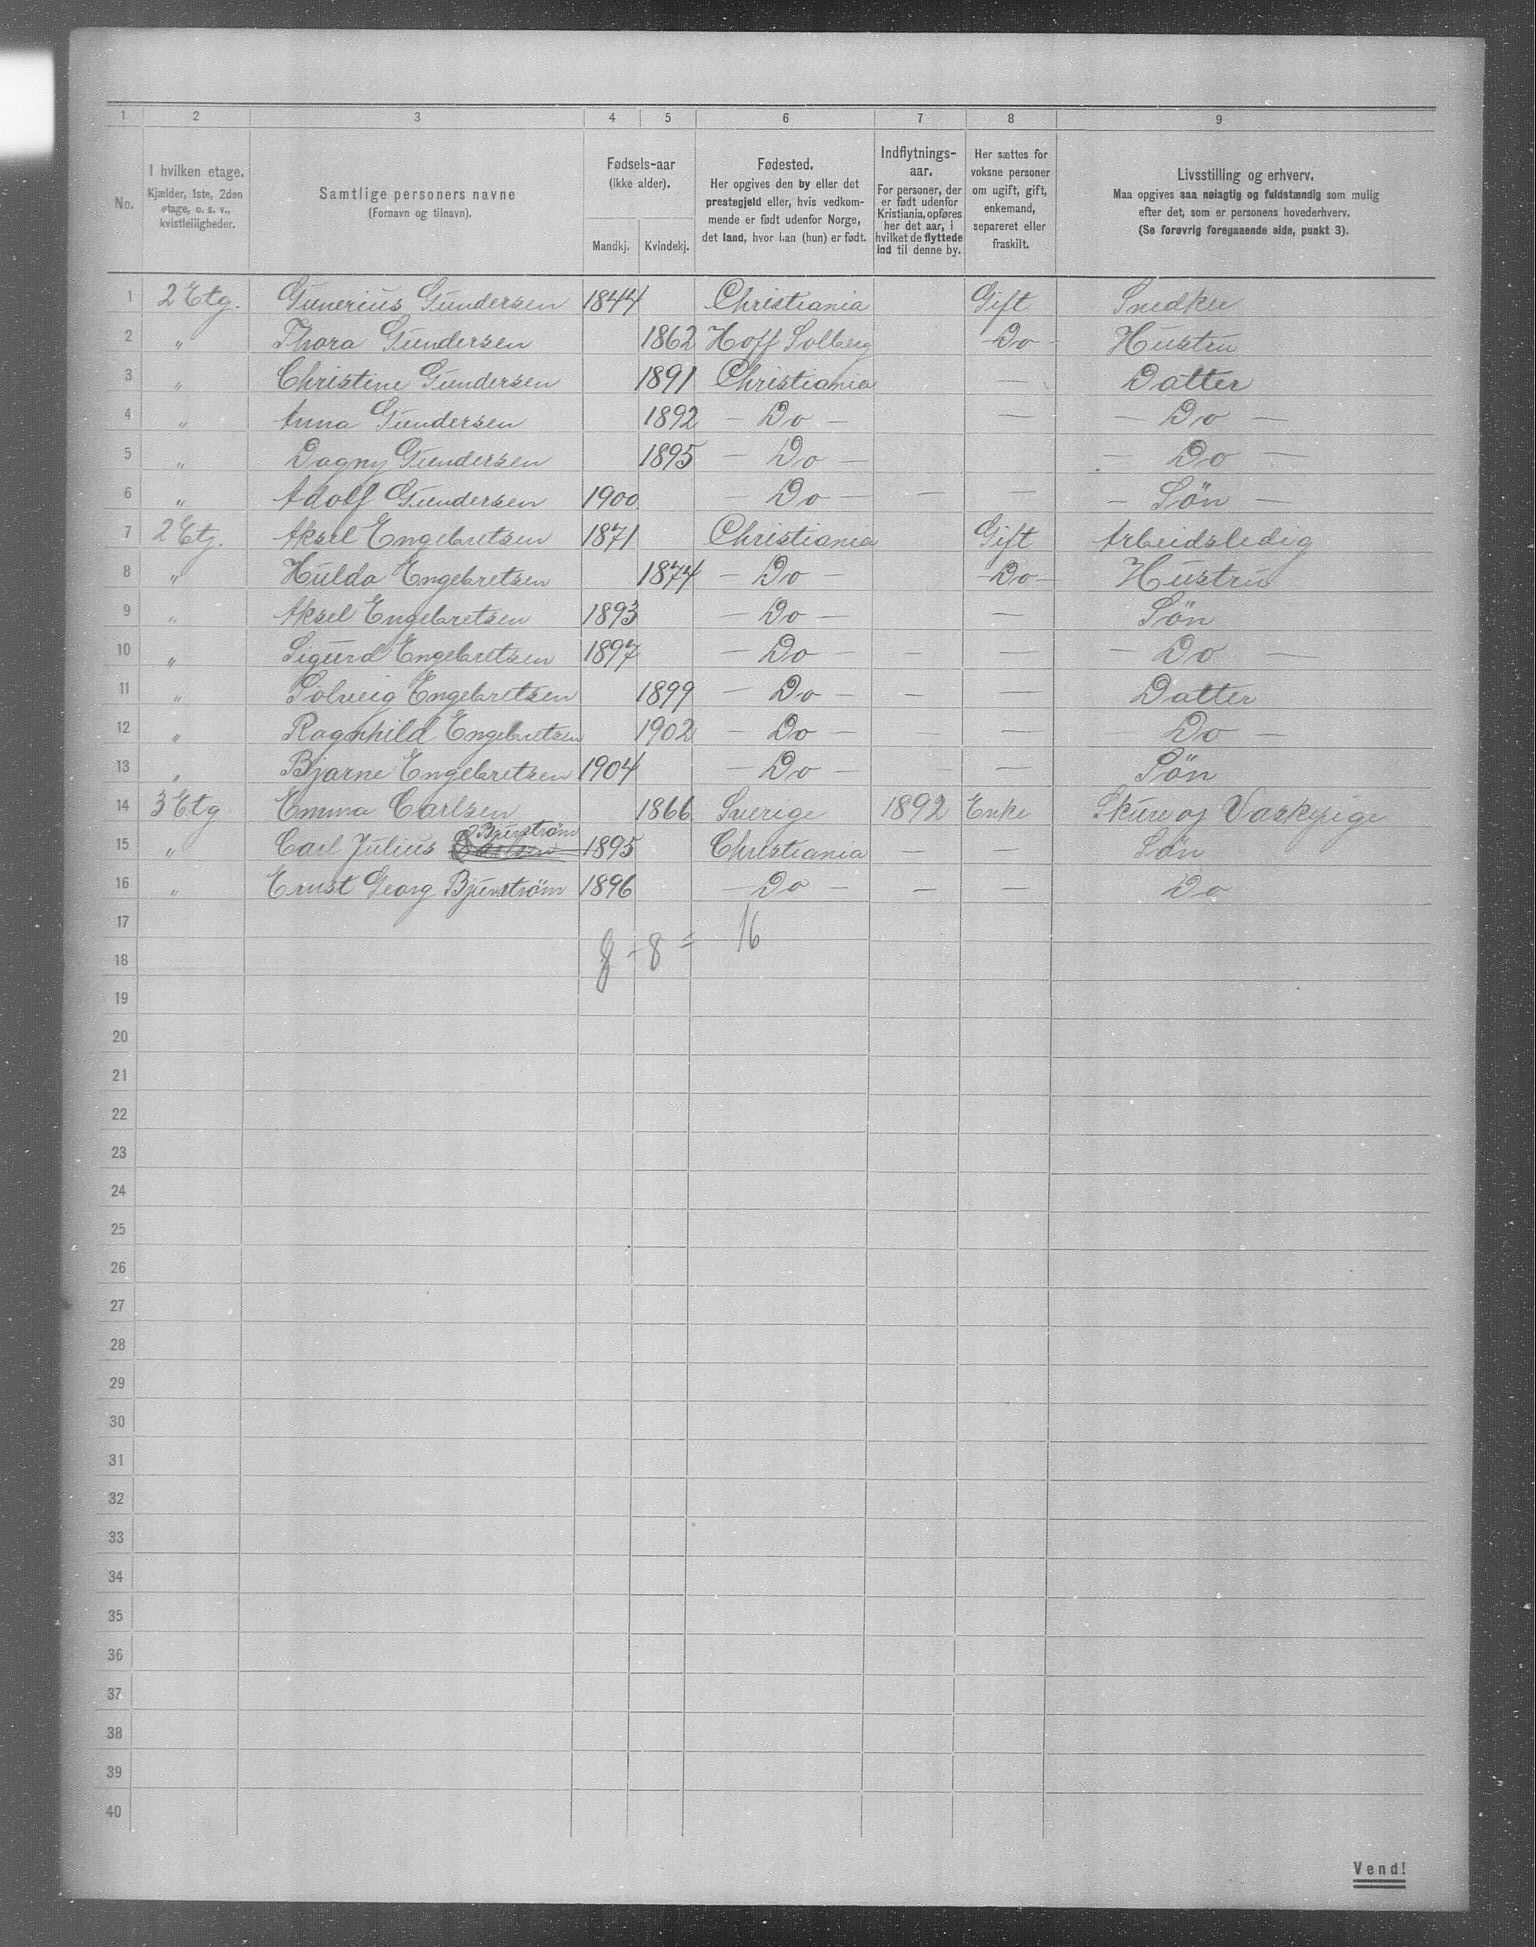 1 2 3 4 5 6 7 8 9
No.
I hvilken etage.
Kjælder, 1ste, 2den
etage, o. s. v.,
kvistleiligheder.
Samtlige personers navne
(Fornavn og tilnavn).
Fødsels-aar
(ikke alder).
Mandkj. Kvindekj.
Fødested.
Her opgives den by eller det
prestegjeld eller, hvis vedkom-
mende er født udenfor Norge,
det land, hvor han (hun) er født.
Indflytnings-
aar.
For personer, der
er født udenfor
Kristiania, opføres
her det aar, i
hvilket de flyttede
ind til denne by.
Her sættes for
voksne personer
om ugift, gift,
enkemand,
separeret eller
fraskilt.
Livsstilling og erhverv.
Maa opgives saa nøiagtig og fuldstændig som mulig
efter det, som er personens hovederhverv.
(Se forøvrig foregaaende side, punkt 3).
1 2 Etg. Gunerius Gundersen 1844 Christiania Gift Snedker
2 " Thora Gundersen 1862 Hoff Solberg Do - Hustru
3 " Christine Gundersen 1891 Christiania — Datter
4 " Anna Gundersen 1892 — Do — — — Do —
5 " Dagny Gundersen 1895 — Do — — - Do —
6 " Adolf Gundersen 1900 — Do — — — - Søn —
7 2 Etg. Aksel Engebretsen 1871 Christiania Gift Arbeidsledig
8 " Hulda Engebretsen 1874 — Do — - Do - Hustru
9 " Aksel Engebretsen 1893 — Do — — Søn
10 " Sigurd Engebretsen 1897 — Do — — — - Do —
11 " Solveig Engebretsen 1899 — Do — — — Datter
12 " Ragnhild Engebretsen 1902 — Do — — Do —
13 " Bjarne Engebretsen 1904 — Do — — — Søn
14 3 Etg Emma Carlsen 1866 Sverige 1892 Enke Skure og Vaskepige
Bjurstrøm
15 " Carl Julius Carlsen 1895 Christiania — — Søn
16 " Ernst Georg Bjurstrøm 1896 — Do — — — Do
17
8 - 8 = 16
18
19
20
21
22
23
24
25
26
27
28
29
30
31
32
33
34
35
36
37
38
39
40
Vend!